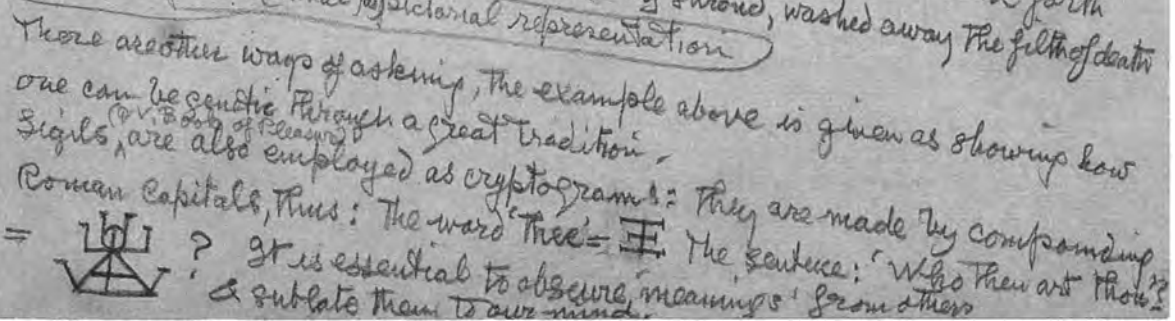 shroud, washed away The filth of death
pictorial representation
There are other ways of asking, The example above is given as showing how
one can be gnostic Through a great Tradition.
(Q.V. Book of Pleasure)
Sigils, are also employed as cryptograms: They are made by compounding
Roman Capitals, Thus: The word 'Thee' = The sentence: 'Who Then art Thou'?
= ? It is essential to obscure, 'meanings' from others
& sublate them to our mind.